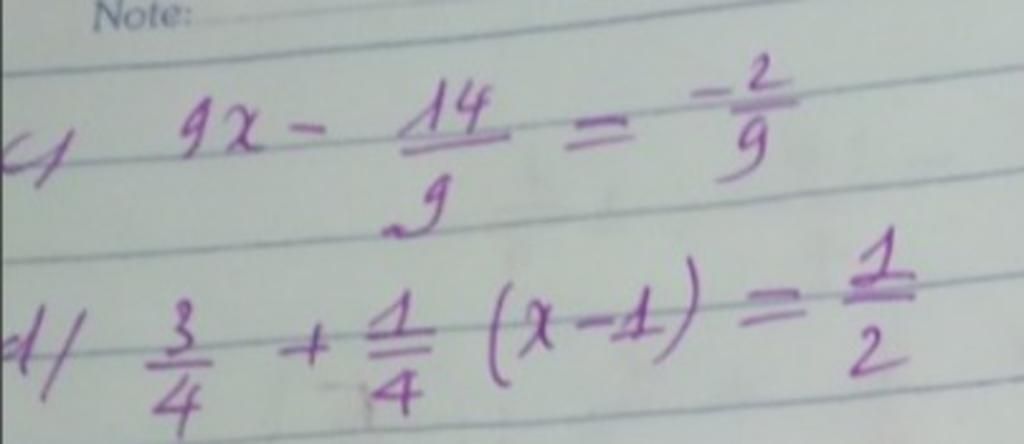 Note:
c/ 9x - 14/9 = -2/9
d/ 3/4 + 1/4 (x-1) = 1/2